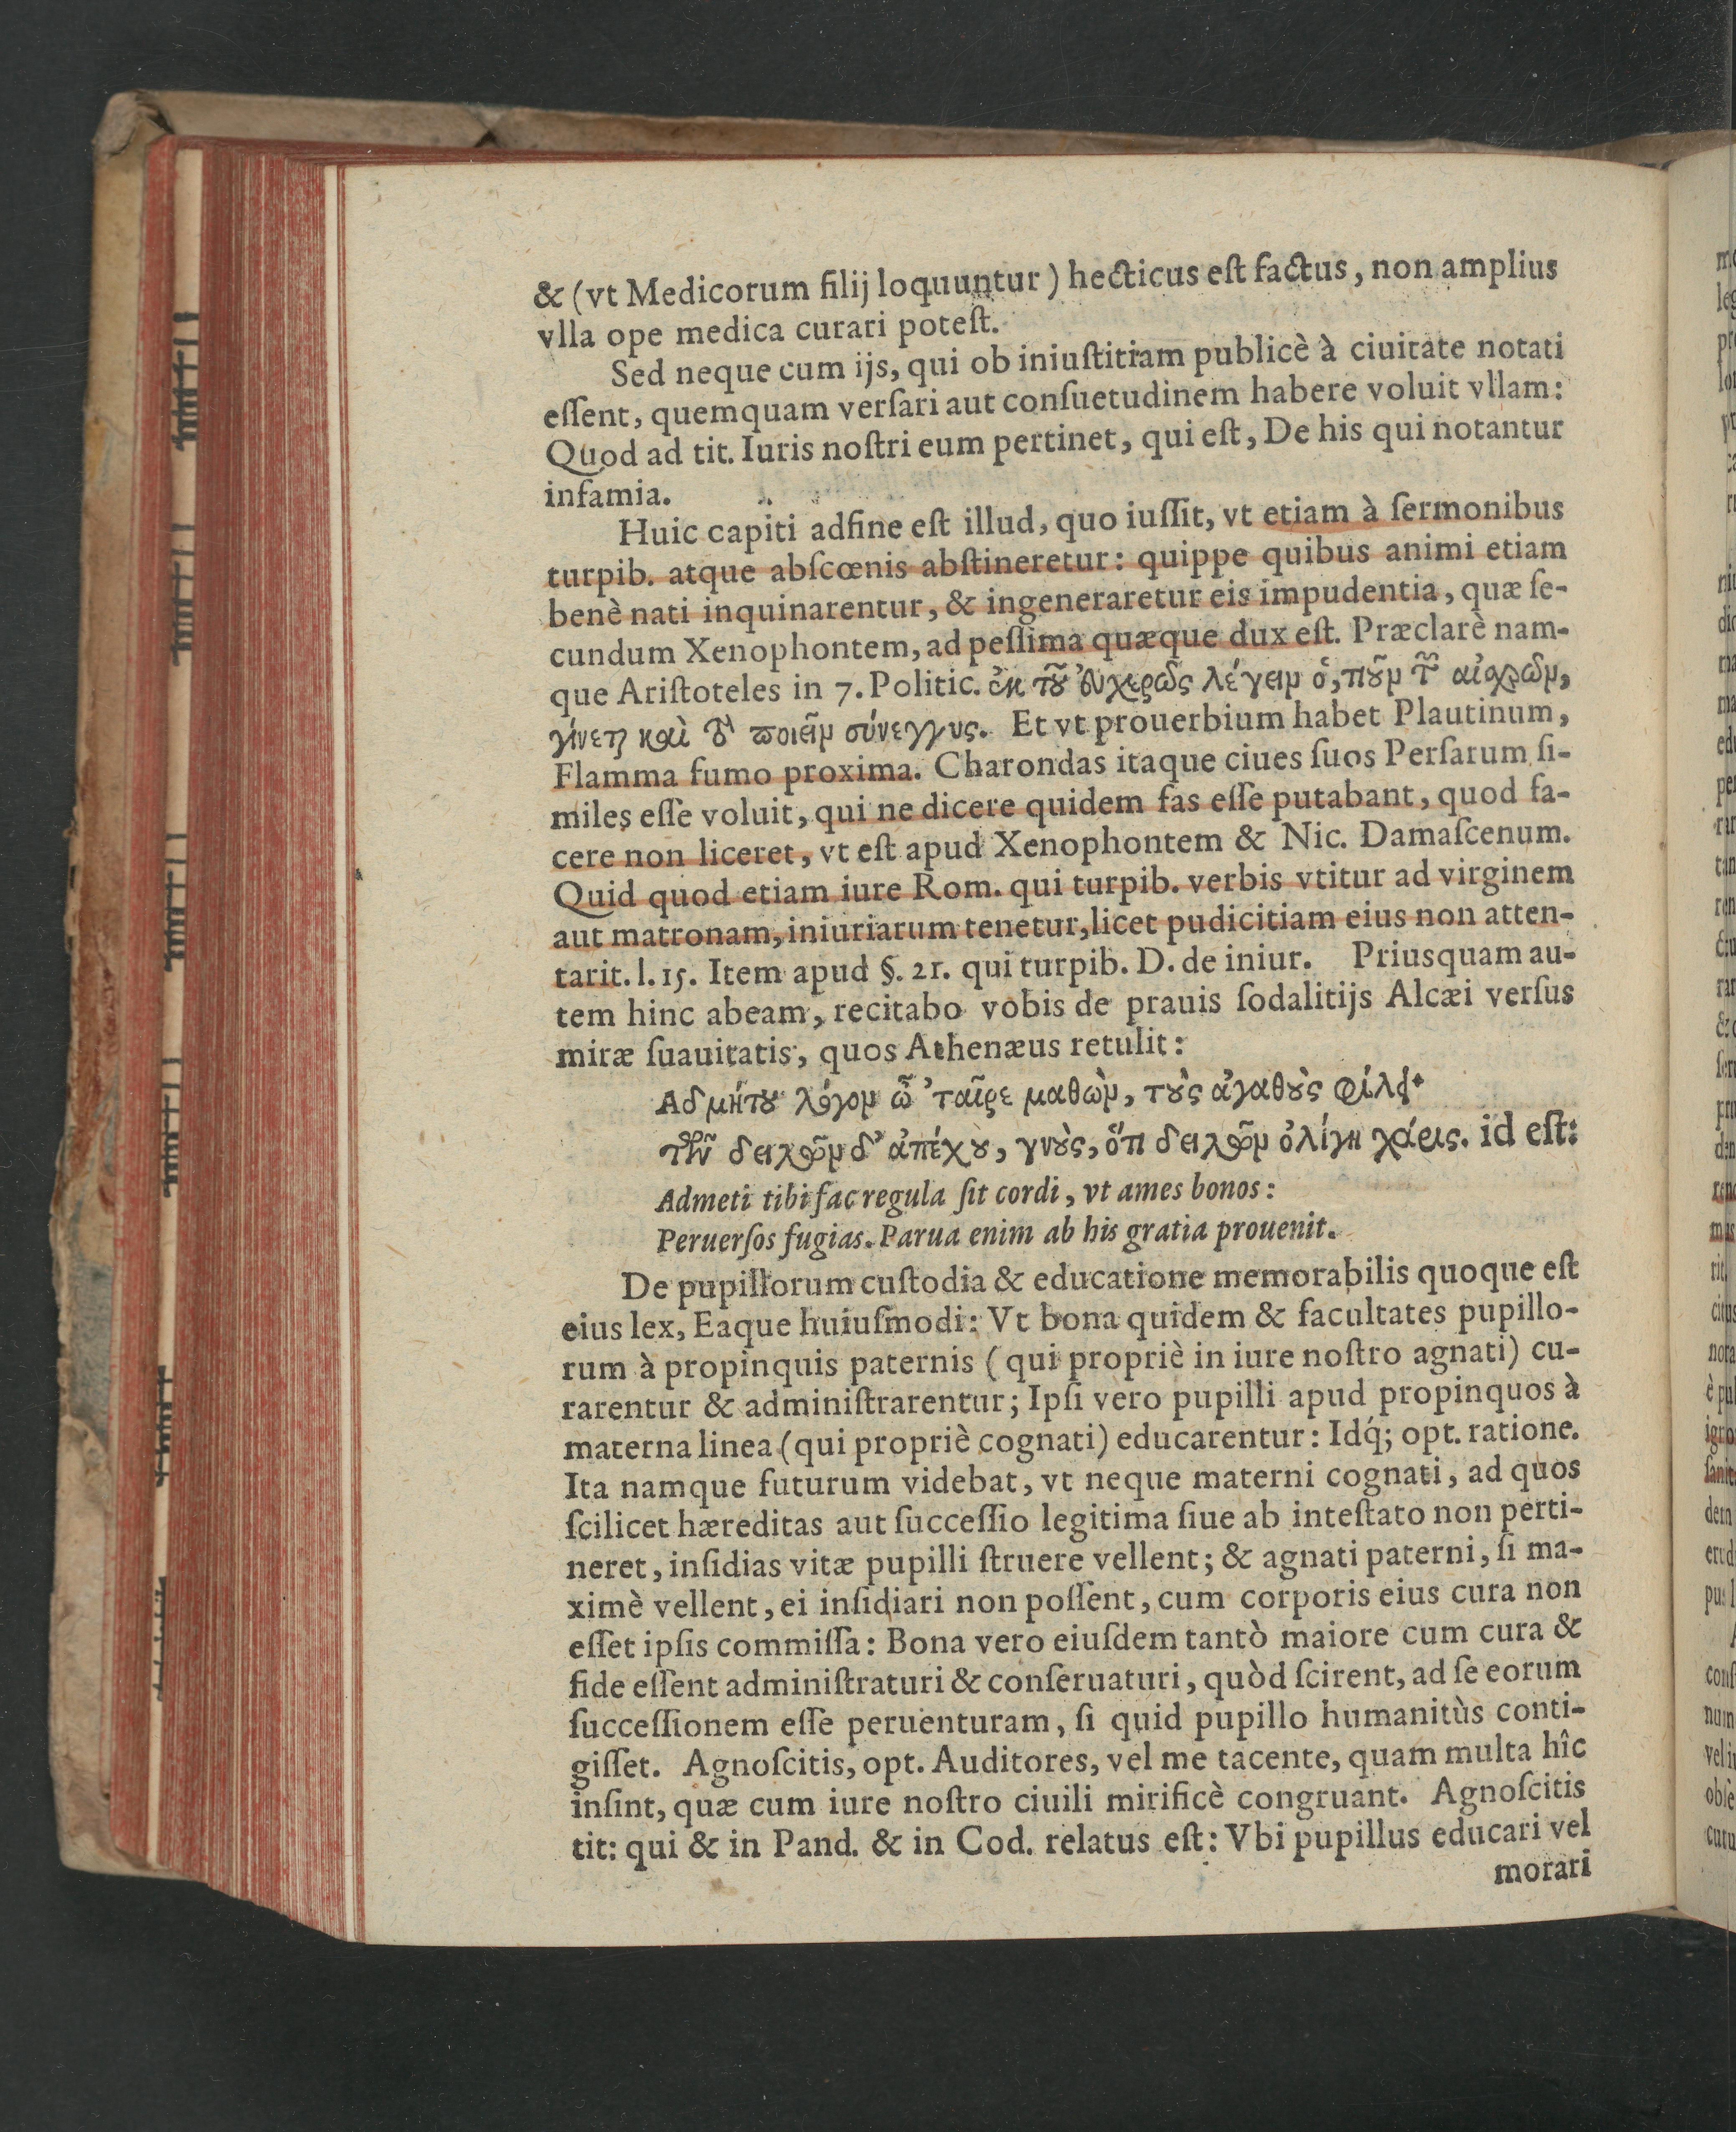 & (vt Medicorum filij loquuntur) hecticus eſt factus, non amplius
vlla ope medica curari poteſt.
Sed neque cum ijs, qui ob iniuſtitiam publicè à ciuitate notati
eſſent, quemquam verſari aut conſuetudinem habere voluit vllam:
Quod ad tit. Iuris noſtri eum pertinet, qui eſt, De his qui notantur
infamia.
Huic capiti adfine eſt illud, quo iuſſit, vt etiam à ſermonibus
turpib. atque abſcœnis abſtineretur: quippe quibus animi etiam
benè nati inquinarentur, & ingeneraretur eis impudentia, quæ ſe-
cundum Xenophontem, ad peſſima quæque dux eſt. Præclarè nam-
que Ariſtoteles in 7. Politic. ἐκ τοῦ εὐχερῶς λέγειν ὁ,τιοῦν τῶν αἰσχρῶν,
γίνεται καὶ τὸ ποιεῖν σύνεγγυς. Et vt prouerbium habet Plautinum,
Flamma fumo proxima. Charondas itaque ciues ſuos Perſarum ſi-
miles eſſe voluit, qui ne dicere quidem fas eſſe putabant, quod fa-
cere non liceret, vt eſt apud Xenophontem & Nic. Damaſcenum.
Quid quod etiam iure Rom. qui turpib. verbis vtitur ad virginem
aut matronam, iniuriarum tenetur, licet pudicitiam eius non atten-
tarit. l. 15. Item apud §. 21. qui turpib. D. de iniur. Priusquam au-
tem hinc abeam, recitabo vobis de prauis ſodalitijs Alcæi verſus
miræ ſuauitatis, quos Athenæus retulit:
Αδμήτου λόγον ὦ ’ταῖρε μαθὼν, τοὺς ἀγαθοὺς φίλει·
τῶν δειλῶν δ’ ἀπέχου, γνοὺς, ὅτι δειλῶν ὀλίγη χάρις. id eſt:
Admeti tibi fac regula ſit cordi, vt ames bonos:
Peruerſos fugias. Parua enim ab his gratia prouenit.
De pupillorum cuſtodia & educatione memorabilis quoque eſt
eius lex, Eaque huiuſmodi: Vt bona quidem & facultates pupillo-
rum à propinquis paternis (qui propriè in iure noſtro agnati) cu-
rarentur & adminiſtrarentur; Ipſi vero pupilli apud propinquos à
materna linea (qui propriè cognati) educarentur: Idq́; opt. ratione.
Ita namque futurum videbat, vt neque materni cognati, ad quos
ſcilicet hæreditas aut ſucceſſio legitima ſiue ab inteſtato non perti-
neret, inſidias vitæ pupilli ſtruere vellent; & agnati paterni, ſi ma-
ximè vellent, ei inſidiari non poſſent, cum corporis eius cura non
eſſet ipſis commiſſa: Bona vero eiuſdem tantò maiore cum cura &
fide eſſent adminiſtraturi & conſeruaturi, quòd ſcirent, ad ſe eorum
ſucceſſionem eſſe peruenturam, ſi quid pupillo humanitùs conti-
giſſet. Agnoſcitis, opt. Auditores, vel me tacente, quam multa hîc
inſint, quæ cum iure noſtro ciuili mirificè congruant. Agnoſcitis
tit: qui & in Pand. & in Cod. relatus eſt: Vbi pupillus educari vel
morari